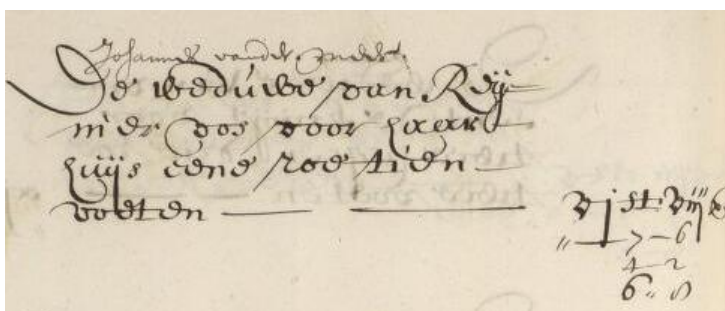 Johannes vander
De weduwe van Reij
nier vos voor haar
huijs eene roe tien
voeten
vj st viij
„ — 7 — 6
4 — 2
6 „ 8